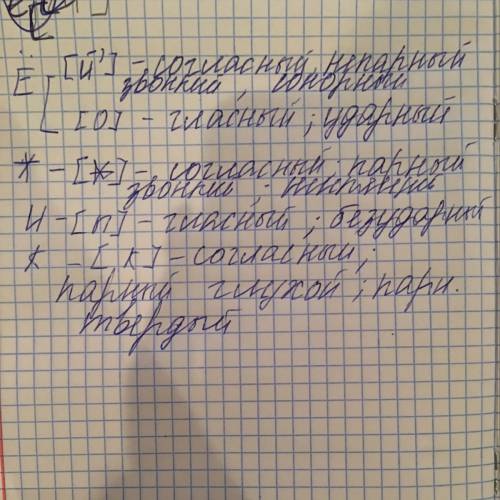 Ё [й'] - согласный, непарный
звонкий, сонорный
[о] - гласный; ударный
ж - [ж] - согласный; парный
звонкий;
и - [и] - гласный; безударный
к - [к] - согласный;
парный глухой; парн.
твёрдый